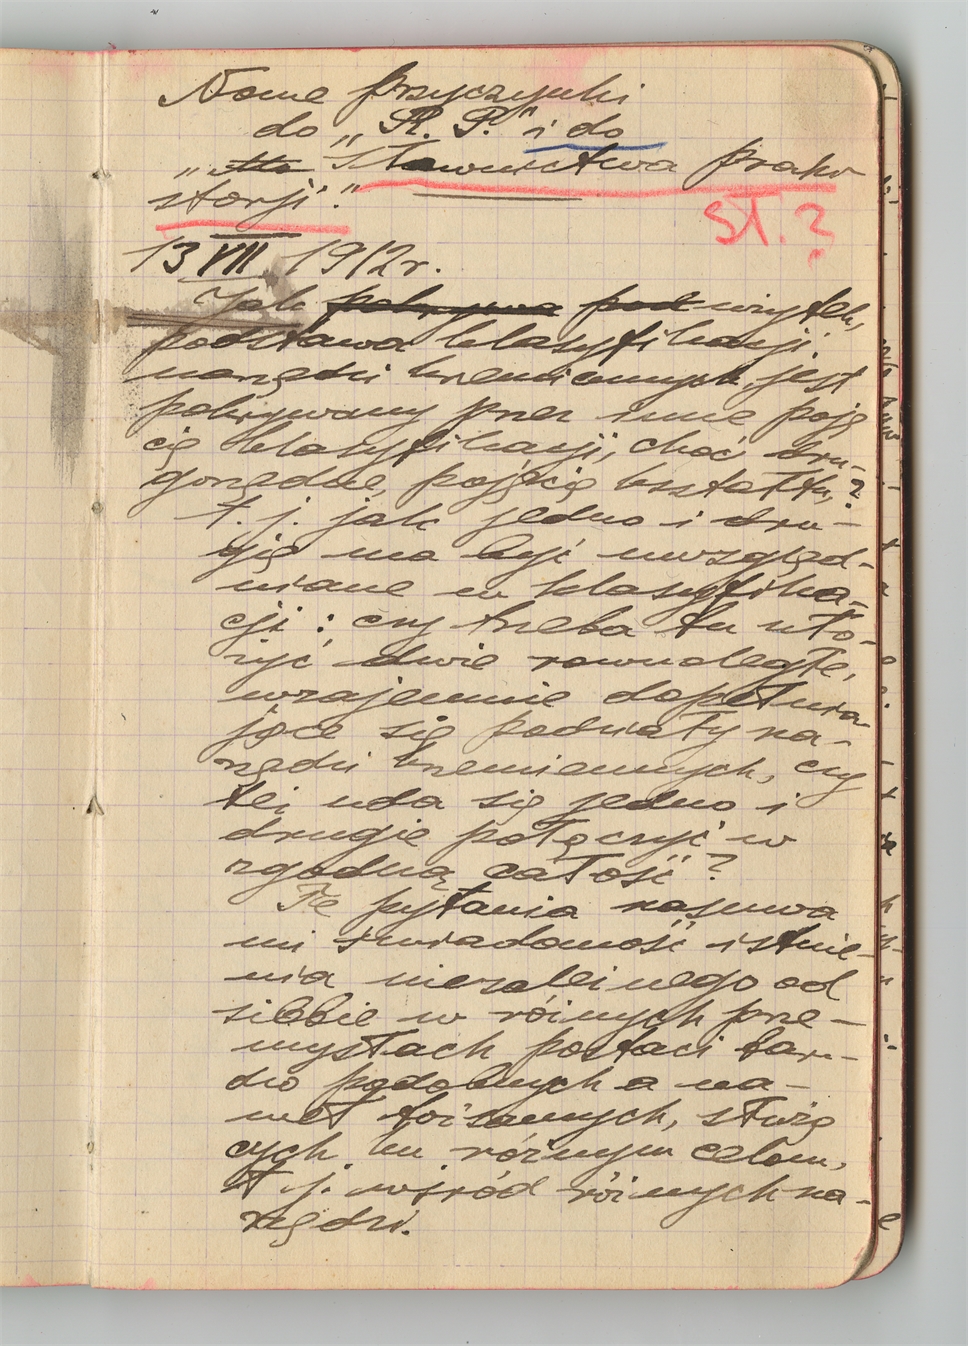 Nowe przyczynki
do „R. P." i do
„Słownictwa prahi
storji."
ST.?
13 VII 1912 r.
Jak użytek,
podstawa klasyfikacji
narzędzi krzemiennych, jest
pokrywany przez inne poję
cię klasyfikacji, choć dru-
gorzędne, pojęcie kształtu?
t. j. jak jedno i dru-
gie ma być uwzględ-
niane w klasyfika-
cji: czy trzeba tu uło-
żyć dwie równoległe,
wzajemnie dopełnia-
jące się podziały na-
rzędzi krzemiennych, czy
też uda się jedno i
drugie połączyć w
zgodną całość?
Te pytania nasuwa
mi świadomość istnie-
nia niezależnego od
siebie w różnych prze-
mysłach postaci bar-
dzo podobnych a na-
wet tożsamych, służą
cych ku różnym celom,
t. j. wśród różnych na-
rzędzi.